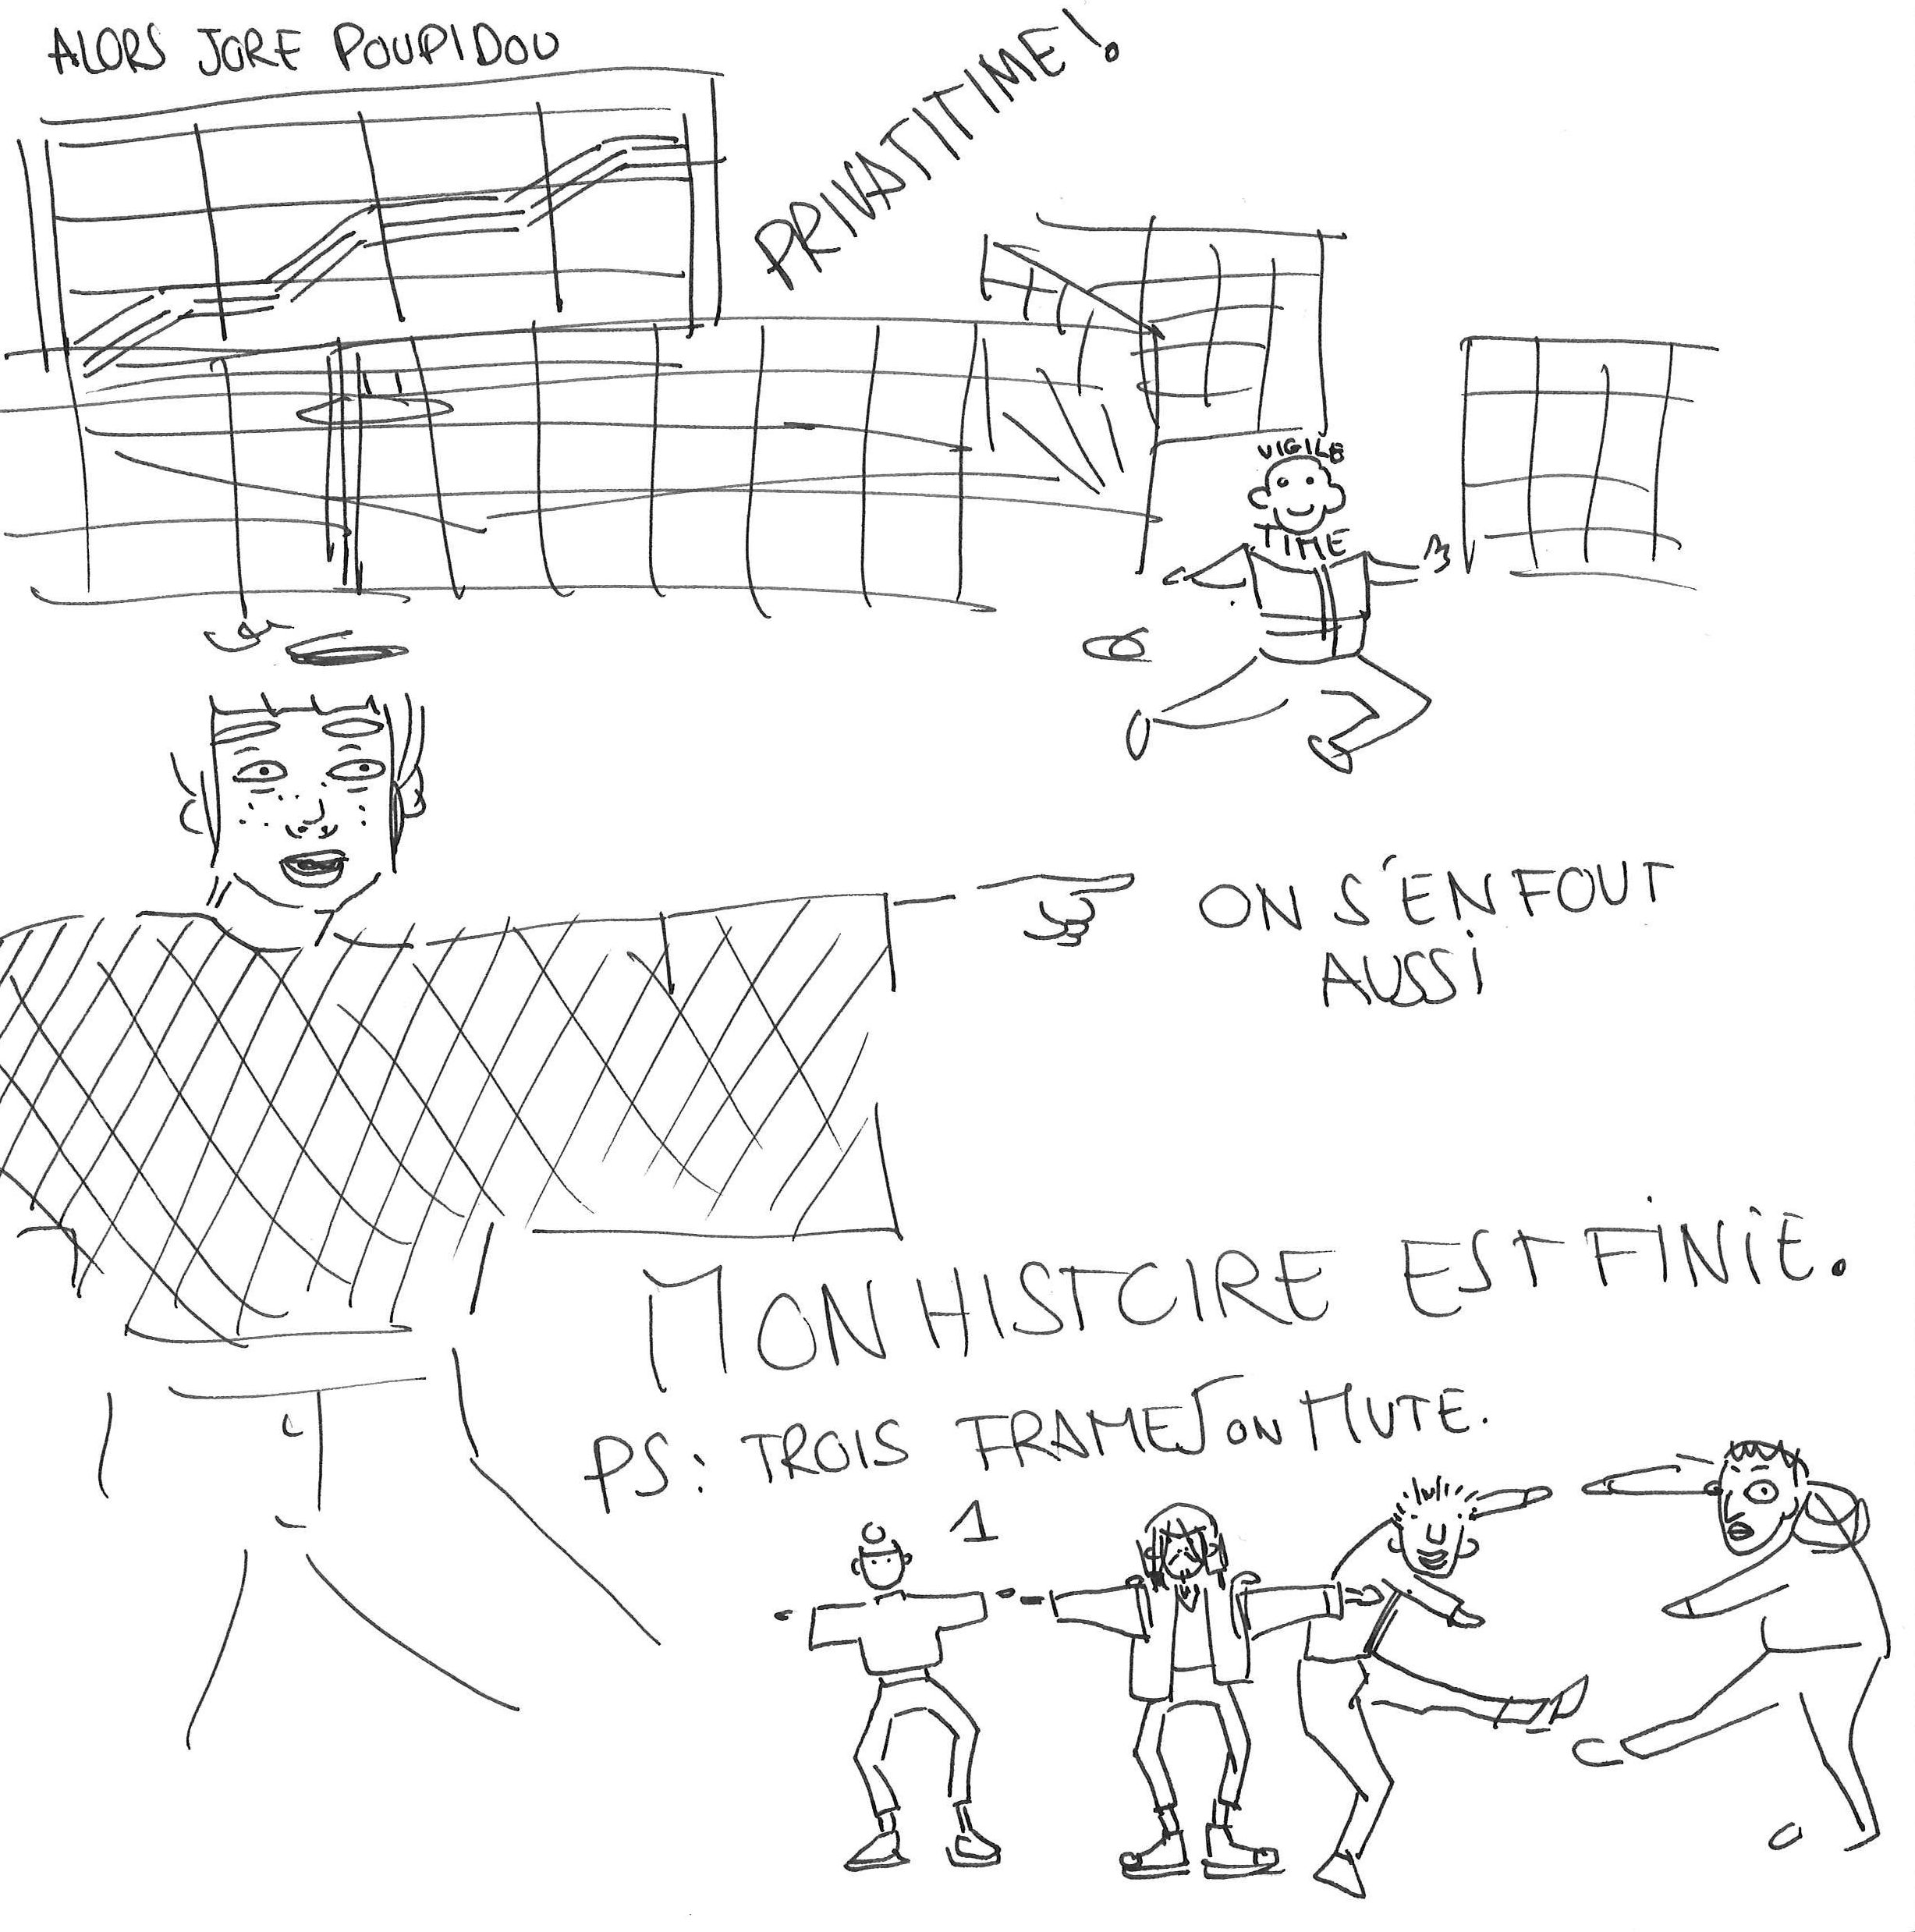 ALORS JORE POUPIDOU
PRIVATITIME!
VIGILE
TIME
ON S'EN FOUT
AUSSI
MON HISTOIRE EST FINIE.
PS: TROIS FRAMES ON MUTE.
1